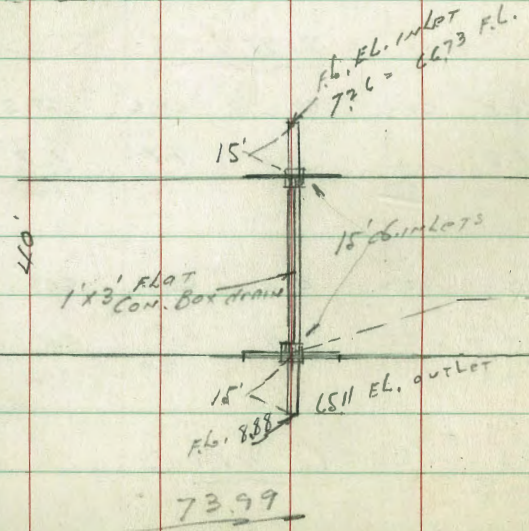 F.L. EL. INLET
7.26 = 6673 F.L.
15'
40'
15' C.B. INLETS
1' x 3' FLAT
CON. BOX drain
15'
6511 EL. OUTLET
F.L. 8.88
73.99